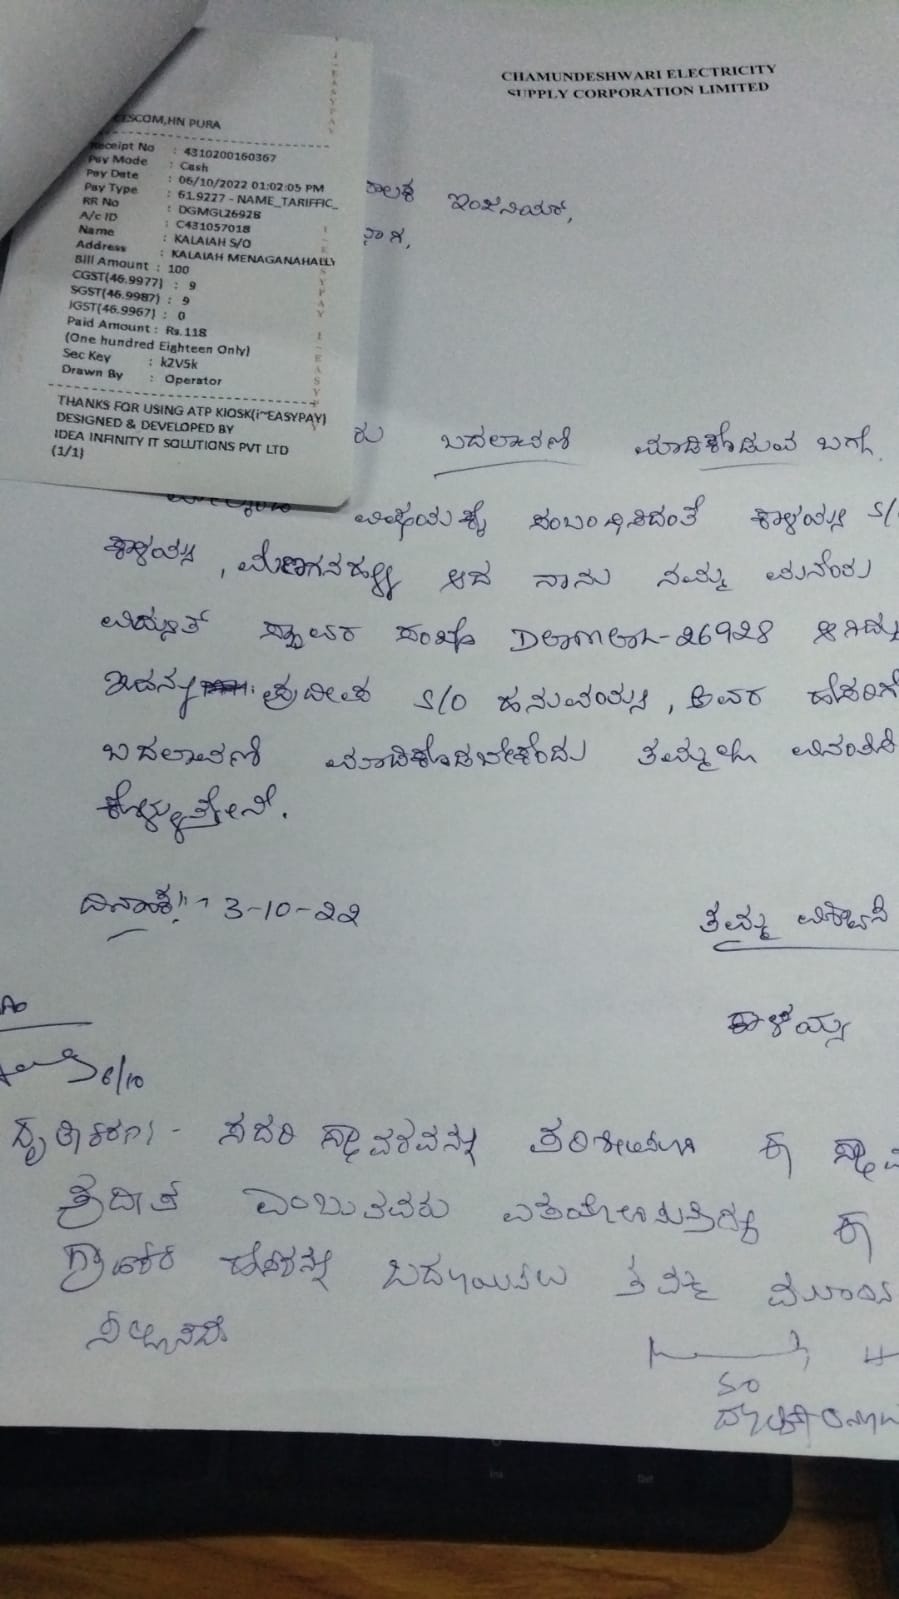 CHAMUNDESHWARI ELECTRICITY
SUPPLY CORPORATION LIMITED
CESCOM,HN PURA
Receipt No : 4310200160367
Pay Mode : Cash
Pay Date : 06/10/2022 01:02:05 PM
Pay Type : 61.9227 - NAME_TARIFFIC_
RR No : DGMGL26928
A/c ID : C431057018
Name : KALAIAH S/O
Address : KALAIAH MENAGANAHALLY
Bill Amount : 100
CGST(46.9977) : 9
SGST(46.9987) : 9
IGST(46.9967) : 0
Paid Amount : Rs.118
(One hundred Eighteen Only)
Sec Key : k2V5k
Drawn By : Operator
THANKS FOR USING ATP KIOSK(i~EASYPAY)
DESIGNED & DEVELOPED BY
IDEA INFINITY IT SOLUTIONS PVT LTD
(1/1)
ಇಂಜಿನಿಯರ್,
ಬದಲಾವಣೆ ಮಾಡಿಕೊಡುವ ಬಗ್ಗೆ.
ವಿಷಯಕ್ಕೆ ಸಂಬಂಧಿಸಿದಂತೆ ಕಾಳಯ್ಯ S/O
ಕಾಳಯ್ಯ, ಮೆಣಗನಹಳ್ಳಿ ಆದ ನಾನು ನಮ್ಮ ಮನೆಯ
ವಿದ್ಯುತ್ ಸ್ಥಾವರ ಸಂಖ್ಯೆ DGMGL-26928 ಆಗಿದ್ದು
ಇದನ್ನು ಪ್ರದೀಪ S/O ಹನುಮಯ್ಯ, ಅವರ ಹೆಸರಿಗೆ
ಬದಲಾವಣೆ ಮಾಡಿಕೊಡಬೇಕೆಂದು ತಮ್ಮಲ್ಲಿ ವಿನಂತಿಸಿ
ಕೊಳ್ಳುತ್ತೇನೆ.
ದಿನಾಂಕ:- 3-10-22
ತಮ್ಮ ವಿಶ್ವಾಸಿ
ಕಾಳಯ್ಯ
6/10
ಸದರಿ ಸ್ಥಾವರವನ್ನು ಪರಿಶೀಲಿಸಲಾಗಿ ಈ
ಎಂಬುವವರು ಈ
ಗ್ರಾಹಕರ ಹೆಸರನ್ನು ಬದಲಾಯಿಸಲು ತಮ್ಮ